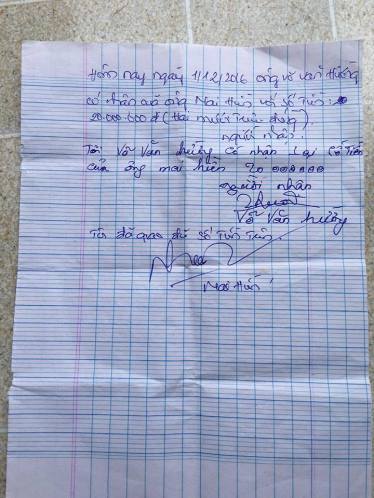 Hôm nay ngày 1/12/2016 ông võ văn Hưởng
có nhận của ông Mai Hiền với số tiền:
20.000.000đ (Hai mươi triệu đồng).
người nhận.
Tôi Võ Văn Hưởng có nhận lại số tiền
của ông mai hiền 20 000000
người nhận
Võ Văn Hưởng
Tôi đã giao đủ số tiền trên.
Mai Hiền